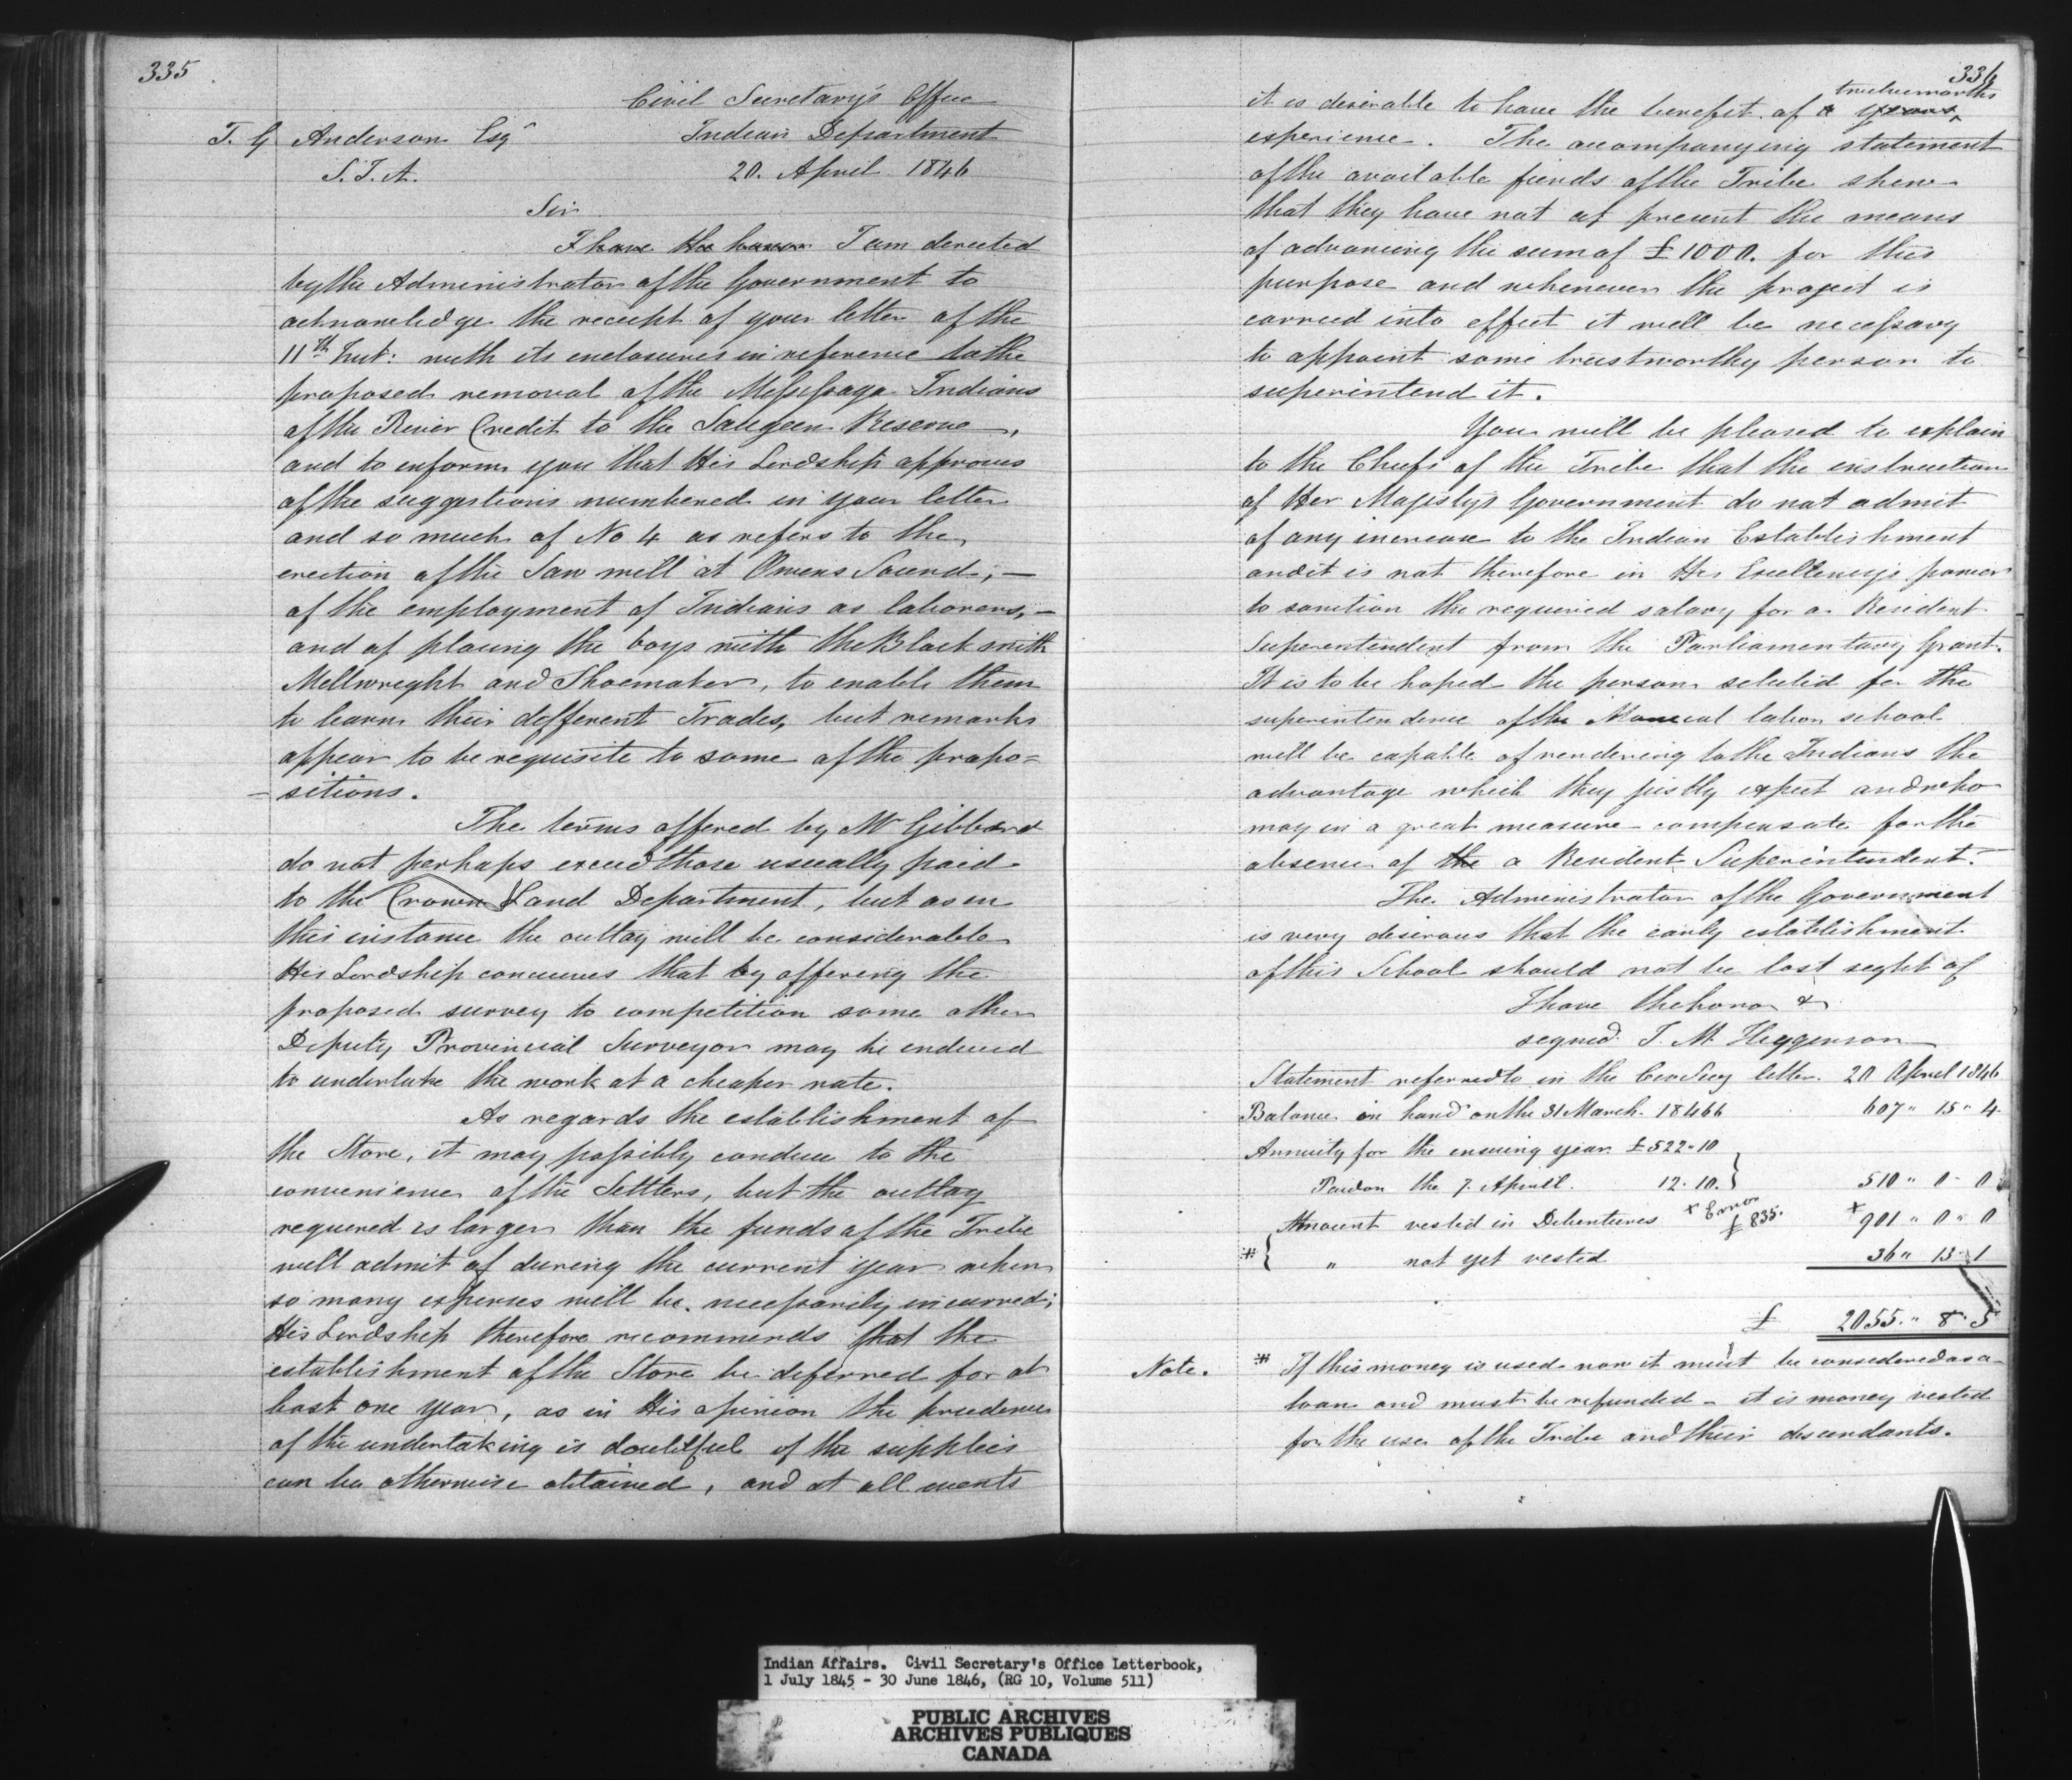 335
Civil Secretary's Office
T. G. Anderson Esqr
Indian Department
S.I.A.
20. April 1846
Sir
I have the honor I am directed
by the Administrator of the Government to
acknowledge the receipt of your letter of the
11th Inst: with its enclosures in reference to the
proposed removal of the Missisaga Indians
of the River Credit to the Saugeen Reserve,
and to inform you that His Lordship approves
of the suggestions numbered in your letter
and so much of No 4 as refers to the
erection of the Saw mill at Owens Sound; —
of the employment of Indians as laborers, —
and of placing the boys with the Black smith
Millwright and Shoemaker, to enable them
to learn their different Trades, but remarks
appear to be requisite to some of the propo=
-sitions.
The terms offered by Mr Gibbard
do not perhaps exceed those usually paid
to the Crown Land Department, but as in
this instance the outlay will be considerable
His Lordship conceives that by offering the
proposed survey to competition some other
Deputy Provincial Surveyor may be induced
to undertake the work at a cheaper rate.
As regards the establishment of
the Store, it may possibly conduce to the
convenience of the Settlers, but the outlay
required is larger than the funds of the Tribe
will admit of during the current year when
so many expenses will be necessarily incurred;
His Lordship therefore recommends that the
establishment of the Store be deferred for at
least one year, as in His opinion the prudence
of the undertaking is doubtful if the supplies
can be otherwise obtained, and at all events
336
twelvemonths
it is desirable to have the benefit of a years
experience. The accompanying statement
of the available funds of the Tribe shew
that they have not at present the means
of advancing the sum of £1000. for this
purpose and whenever the project is
carried into effect it will be necessary
to appoint some trustworthy person to
superintend it.
You will be pleased to explain
to the Chiefs of the Tribe that the instruction
of Her Majesty's Government do not admit
of any increase to the Indian Establishment
and it is not therefore in His Excellency's power
to sanction the required salary for a Resident
Superintendent from the Parliamentary Grant.
It is to be hoped the person selected for the
superintendence of the Manual labor school
will be capable of rendering to the Indians the
advantage which they justly expect and who
may in a great measure compensate for the
absence of the a Resident Superintendent.
The Administrator of the Government
is very desirous that the early establishment
of this School should not be lost sight of
I have the honor &
signed J. M. Higginson
Statement referred to in the Civ Secy letter. 20 April 1846
Balance in hand on the 31 March. 18466 607 " 15 " 4
Annuity for the ensuing year £522 " 10
Paid on the 7. April. 12. 10. } 510 " 0 - 0
Amount vested in Debentures x Error £835. x 901 " 0 " 0
* { " not yet vested 36 " 13 " 1
£ 2055. " 8. 5
Note. * If this money is used now it must be considered as a
loan and must be refunded - it is money vested
for the use of the Tribe and their descendants.
Indian Affairs. Civil Secretary's Office Letterbook,
1 July 1845 - 30 June 1846, (RG 10, Volume 511)
PUBLIC ARCHIVES
ARCHIVES PUBLIQUES
CANADA